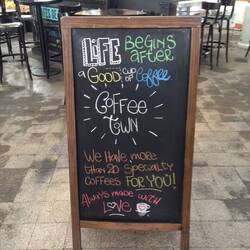 LIFE BEGINS
AFTER
a GOOD cup of Coffee
Coffee
Town
WE HAVE MORE
than 20 SPECIALTY
COFFEES FOR YOU!
ALWAYS MADE WITH
LOVE